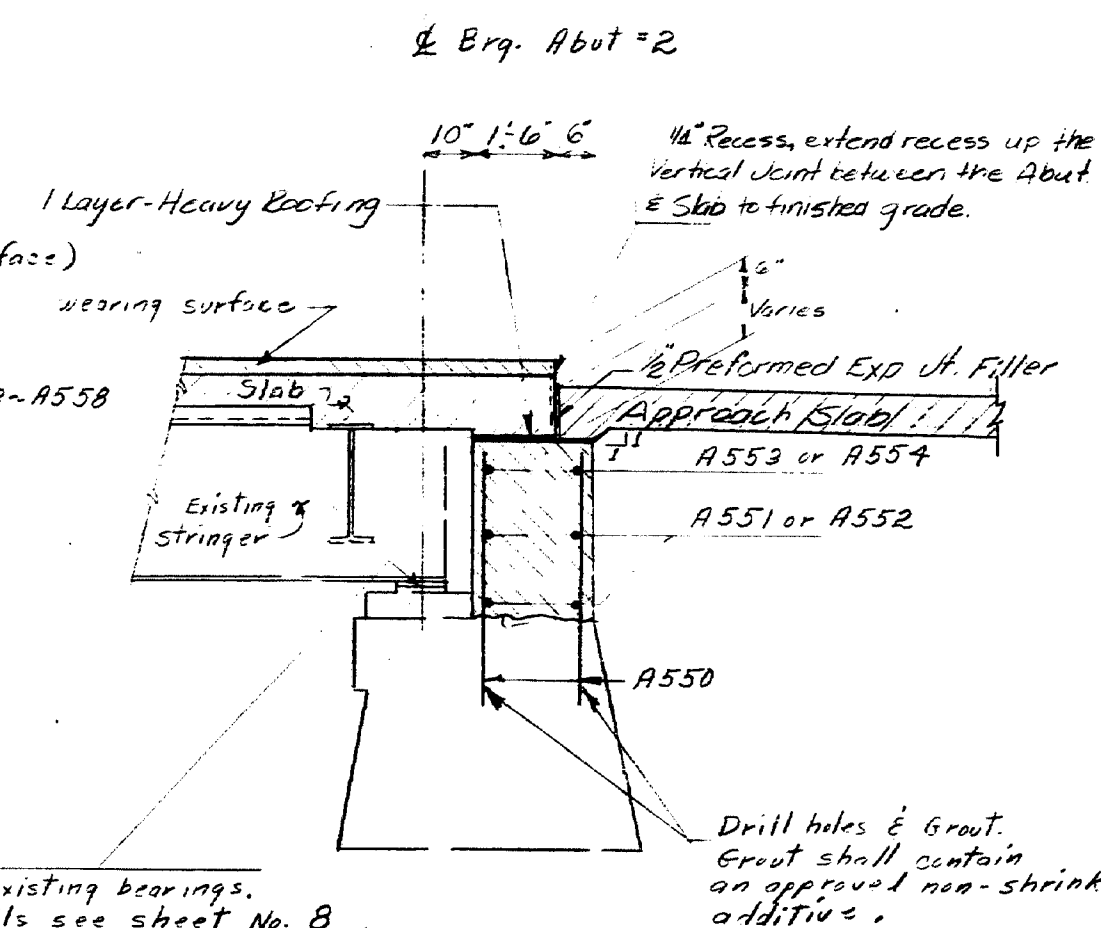 ℄ Brg. Abut #2
10" 1'-6" 6"
1/4" Recess, extend recess up the
Vertical Joint between the Abut.
& Slab to finished grade.
1 Layer-Heavy Roofing
face)
wearing surface
6"
Varies
1/2" Preformed Exp Jt. Filler
Slab
A558
Approach Slab
A553 or A554
A551 or A552
Existing
Stringer
A550
Drill holes & Grout.
Grout shall contain
an approved non-shrink
additive.
xisting bearings.
ls see sheet No. 8